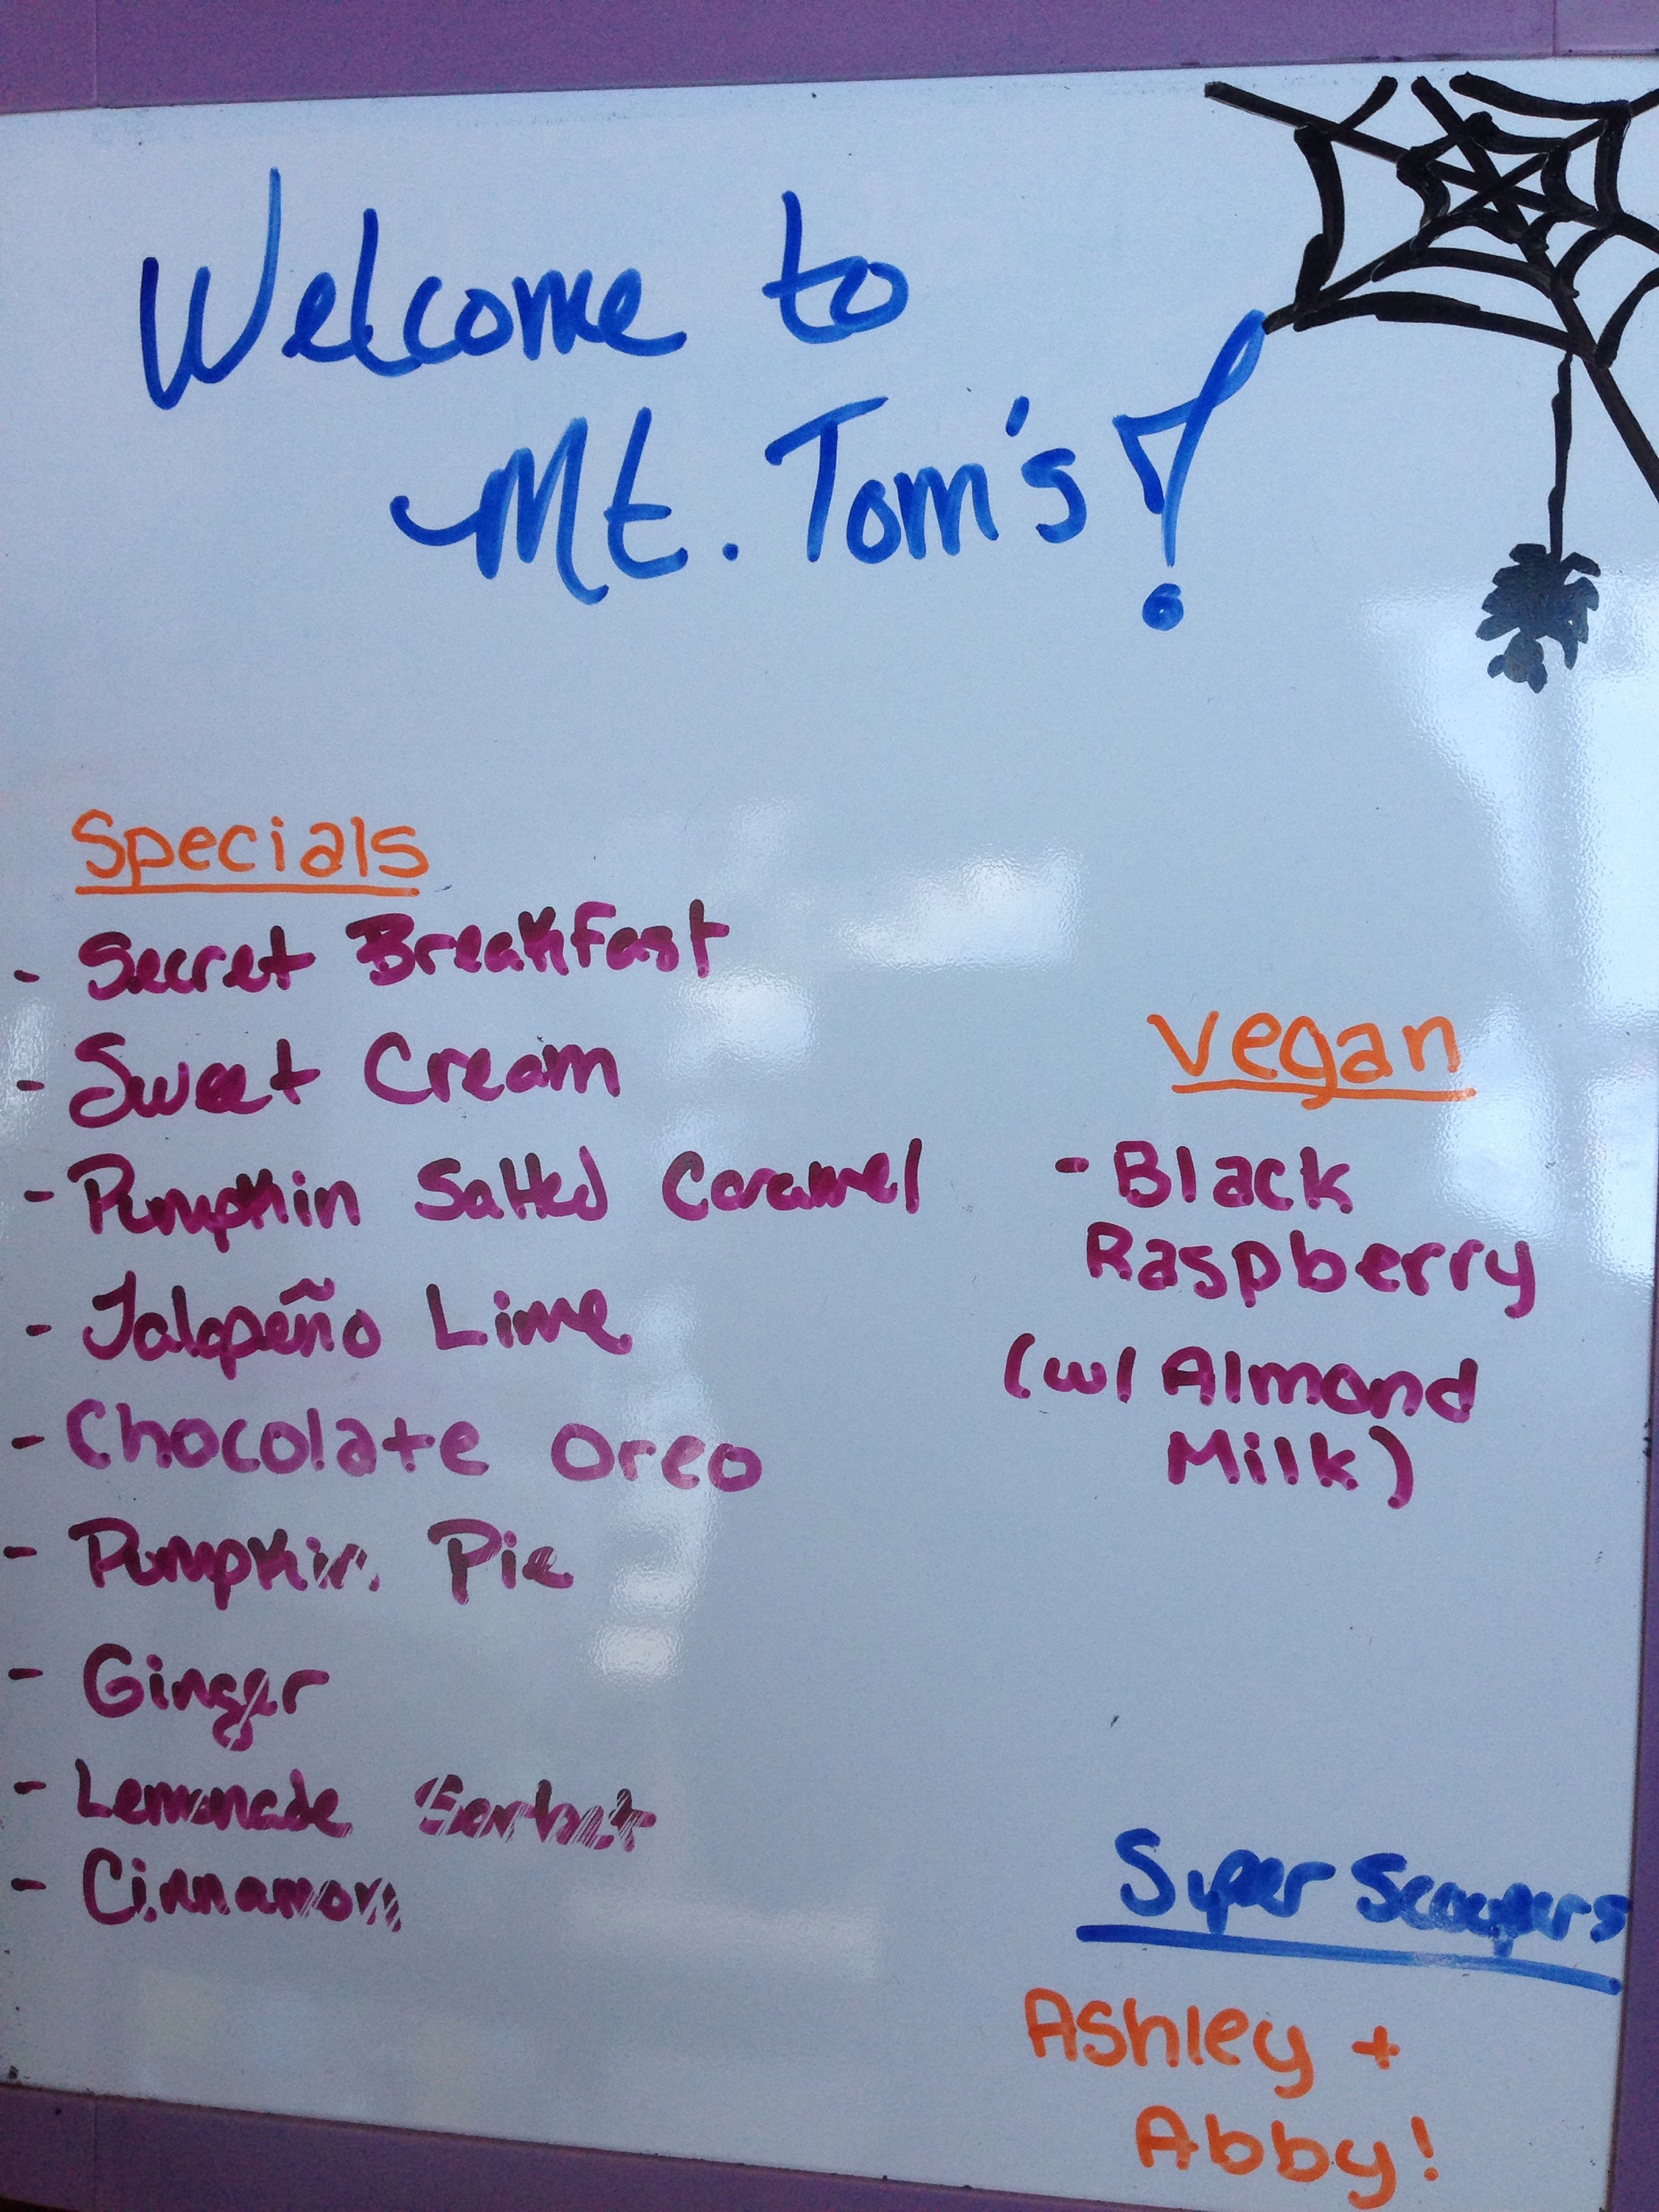 Welcome to
Mt. Tom's!
Specials
- Secret Breakfast
- Sweet Cream
- Pumpkin Salted Caramel
- Jalapeño Lime
- Chocolate Oreo
- Pumpkin Pie
- Ginger
- Lemonade Sorbet
- Cinnamon
Vegan
- Black
Raspberry
(w/ Almond
Milk)
Super Scoopers
Ashley +
Abby!